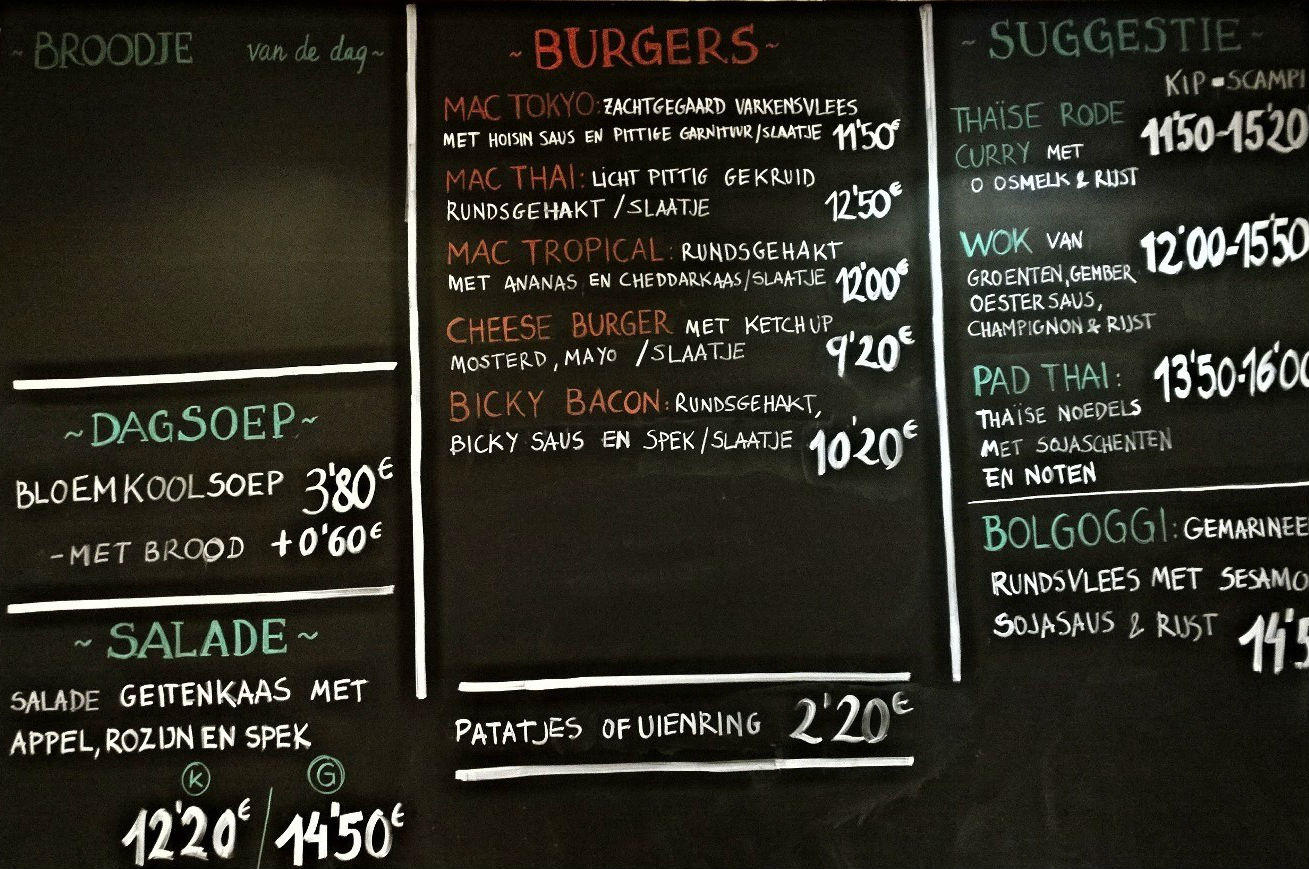 ~ BROODJE van de dag ~
~ DAGSOEP ~
BLOEMKOOLSOEP 3'80€
- MET BROOD +0'60€
~ SALADE ~
SALADE GEITENKAAS MET
APPEL, ROZIJN EN SPEK
K G
12'20€ / 14'50€
~ BURGERS ~
MAC TOKYO: ZACHTGEGAARD VARKENSVLEES
MET HOISIN SAUS EN PITTIGE GARNITUUR/SLAATJE 11'50€
MAC THAI: LICHT PITTIG GEKRUID
RUNDSGEHAKT /SLAATJE 12'50€
MAC TROPICAL: RUNDSGEHAKT
MET ANANAS EN CHEDDARKAAS/SLAATJE 12'00€
CHEESE BURGER MET KETCHUP
MOSTERD, MAYO /SLAATJE 9'20€
BICKY BACON: RUNDSGEHAKT,
BICKY SAUS EN SPEK/SLAATJE 10'20€
PATATJES OF UIENRING 2'20€
~ SUGGESTIE ~
KIP - SCAMPI
THAÏSE RODE 11'50-15'20
CURRY MET
O OSMELK & RIJST
WOK VAN 12'00-15'50
GROENTEN, GEMBER
OESTERSAUS,
CHAMPIGNON & RIJST
PAD THAI: 13'50-16'00
THAÏSE NOEDELS
MET SOJASCHENTEN
EN NOTEN
BOLGOGGI: GEMARINEE
RUNDSVLEES MET SESAMO
SOJASAUS & RIJST
14'5